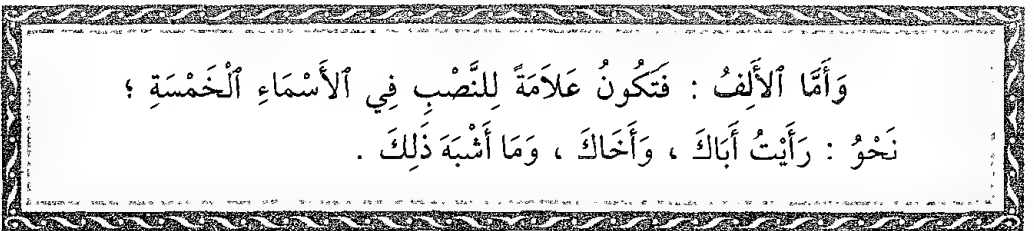 وَأَمَّا ٱلأَلِفُ : فَتَكُونُ عَلاَمَةً لِلنَّصْبِ فِي ٱلأَسْمَاءِ ٱلْخَمْسَةِ ؛
نَحْوُ : رَأَيْتُ أَبَاكَ ، وَأَخَاكَ ، وَمَا أَشْبَهَ ذَلِكَ .